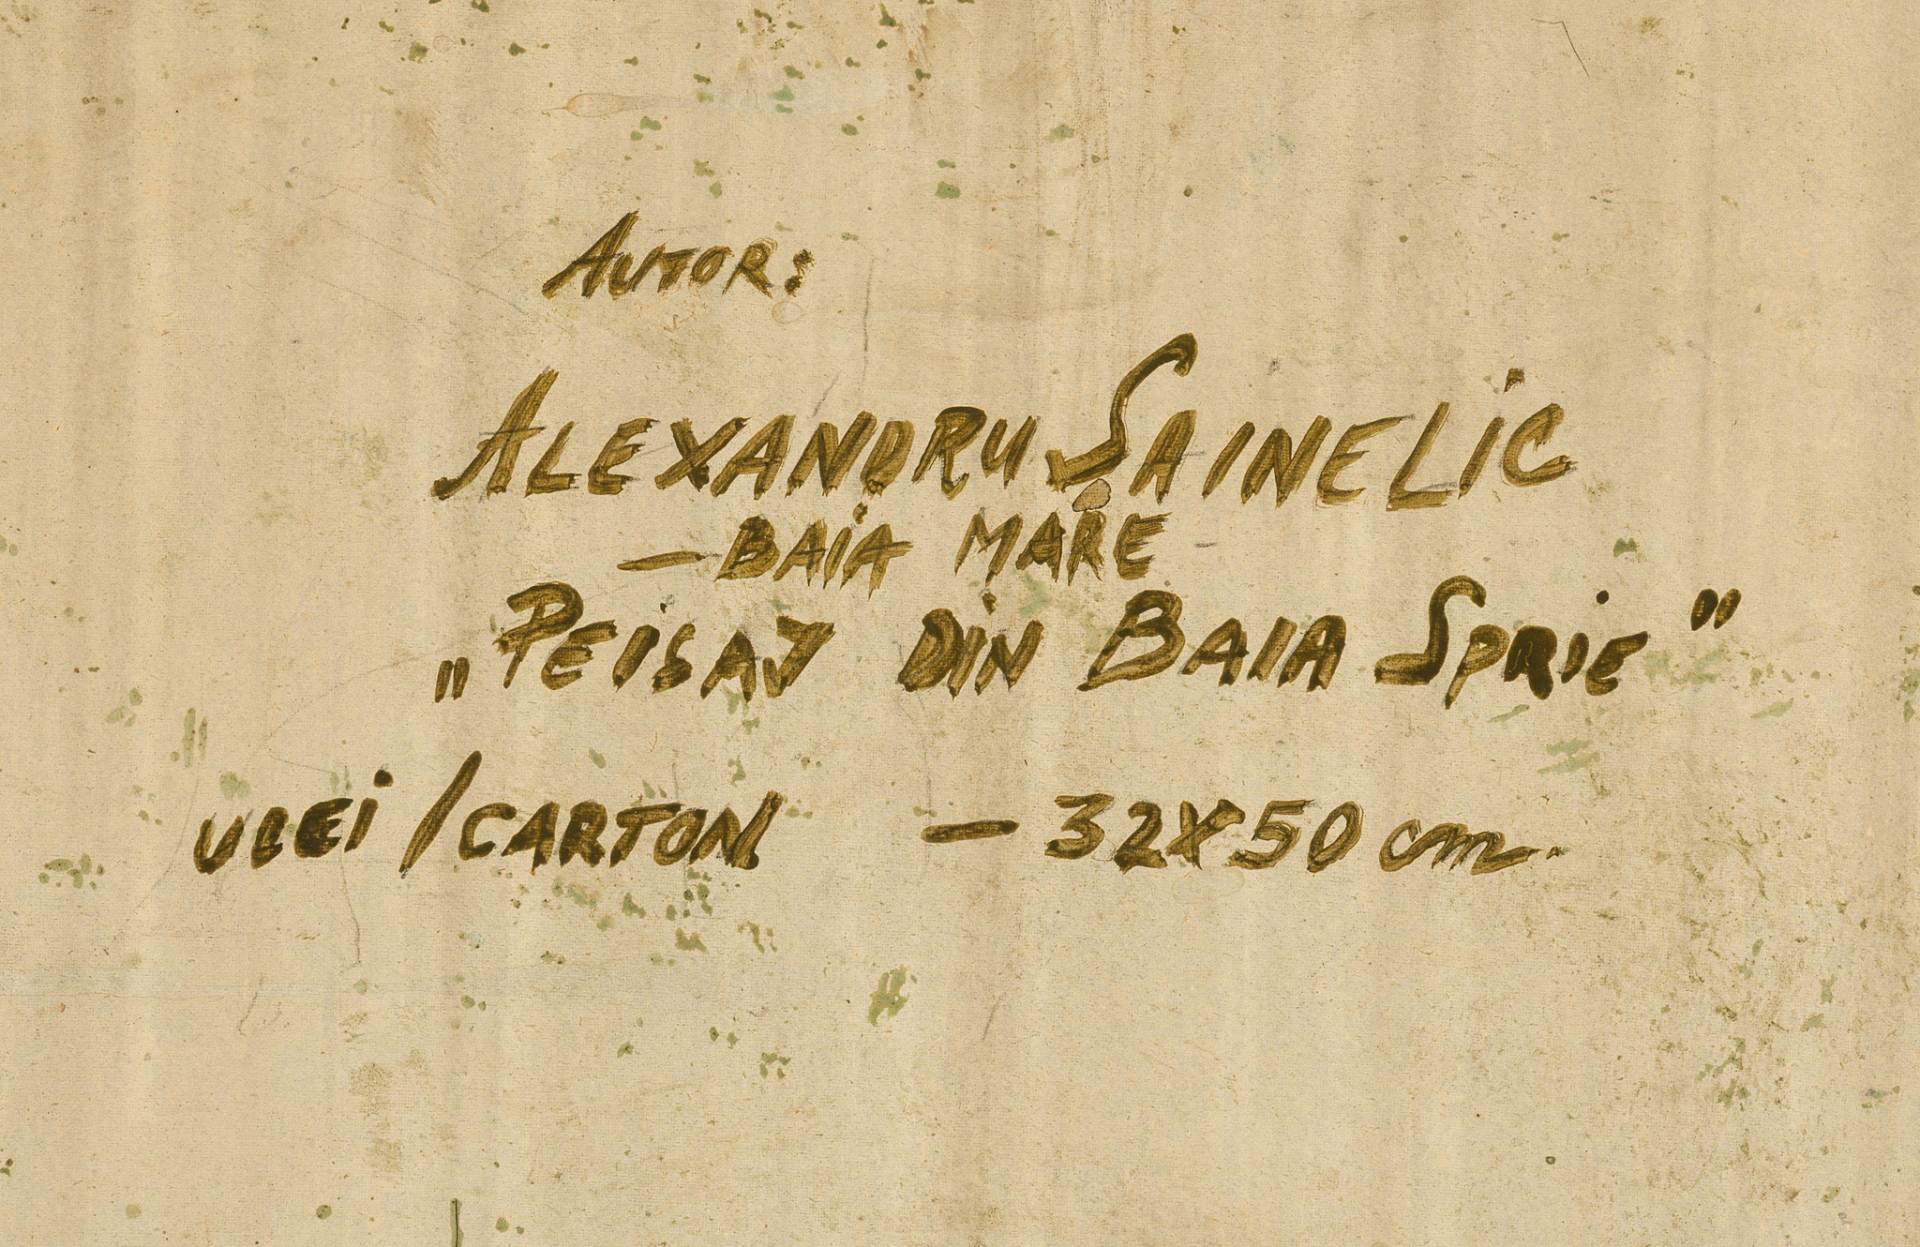 AUTOR:
ALEXANDRU SAINELIC
— BAIA MARE
„PEISAJ DIN BAIA SPRIE"
ULEI / CARTON — 32X50 cm.